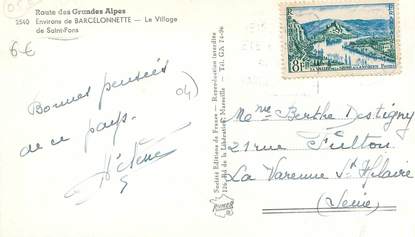 Route des Grandes Alpes
1540 Environs de BARCELONNETTE — Le Village
de Saint-Pons
6€
04)
Bonnes pensées
de ce pays.
Hélène
Société Editions de France — Reproduction interdite
126, Bd de la Libération, Marseille - Tél. GA 74-96
8F
POSTES
Mme Berthe Destigny
21 rue Fulton
La Varenne St Hilaire
(Seine)